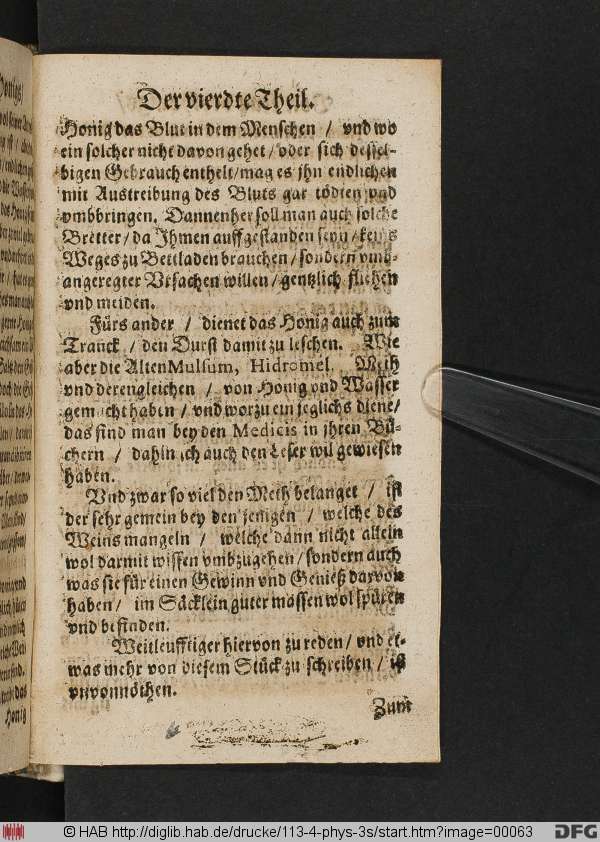 Der vierdte Theil.
Honig das Blut in dem Menschen / vnd wo
ein solcher nicht davon gehet / oder sich dessel-
bigen Gebrauch enthelt / mag es jhn endlichen
mit Austreibung des Bluts gar tödten vnd
vmbbringen. Dannenher soll man auch solche
Bretter / da Ihmen auffgestanden seyn / keins
Weges zu Bettladen brauchen / sondern vmb-
angeregter Vrsachen willen / gentzlich fliehen
vnd meiden.
Fürs ander / dienet das Honig auch zum
Tranck / den Durst damit zu leschen. Wie
aber die Alten Mulsum, Hidromel. Meth
vnd derengleichen / von Honig vnd Wasser
gemacht haben / vnd worzu ein jeglichs diene /
das find man bey den Medicis in jhren Bü-
chern / dahin ich auch den Leser wil gewiesen
haben.
Vnd zwar so viel den Meth belanget / ist
der sehr gemein bey den jenigen / welche des
Weins mangeln / welche dann nicht allein
wol darmit wissen vmbzugehen / sondern auch
was sie für einen Gewinn vnd Genieß darvon
haben / im Säcklein guter massen wol spüren
vnd befinden.
Weitleufftiger hiervon zu reden / vnd et-
was mehr von diesem Stück zu schreiben / ist
vnvonnöthen.
Zum
Honig
© HAB http://diglib.hab.de/drucke/113-4-phys-3s/start.htm?image=00063
DFG